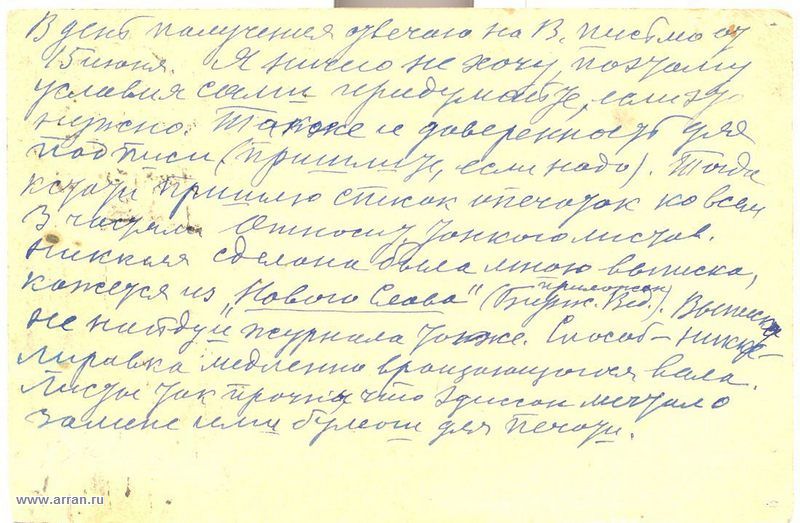 В день получения отвечаю на В. письмо от
15 июня. Я ничего не хочу, поэтому
условия сами придумайте, если это
нужно. Также и доверенность для
подписи (пришлите, если надо). Тогда
кстати пришлю список опечаток ко всем
3 частям. Относит. тонкого листов.
никкеля сделана была мною выписка,
кажется из „Нового Слова" (приложен. Бирж. Вед.). Выписки
не найду и журнала тоже. Способ – никке-
лировка медленно вращающегося вала.
Листы так прочны что Эдиссон мечтал о
замене ими бумаги для печати.
www.arran.ru